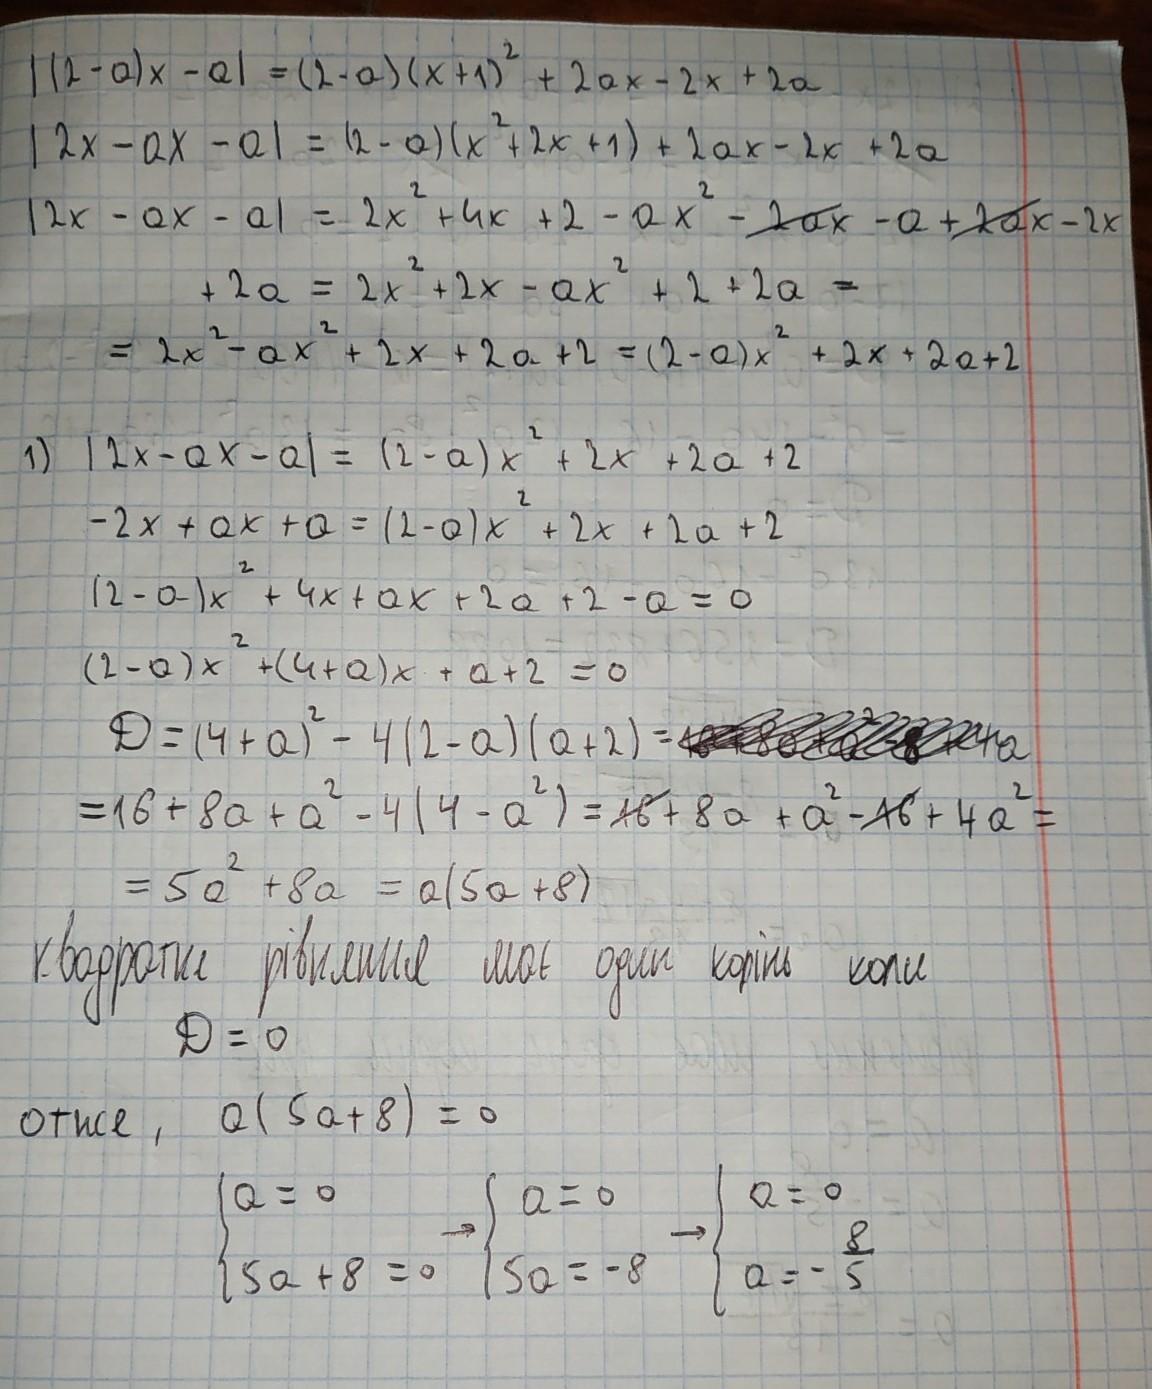 |(2-a)x - a| = (2-a)(x+1)² + 2ax - 2x + 2a
|2x - ax - a| = (2-a)(x²+2x+1) + 2ax - 2x + 2a
|2x - ax - a| = 2x² + 4x + 2 - ax² - 2ax - a + 2ax - 2x
+ 2a = 2x² + 2x - ax² + 2 + 2a =
= 2x² - ax² + 2x + 2a + 2 = (2-a)x² + 2x + 2a + 2
1) |2x - ax - a| = (2-a)x² + 2x + 2a + 2
-2x + ax + a = (2-a)x² + 2x + 2a + 2
(2-a)x² + 4x + ax + 2a + 2 - a = 0
(2-a)x² + (4+a)x + a + 2 = 0
D = (4+a)² - 4(2-a)(a+2) =
= 16 + 8a + a² - 4(4 - a²) = 16 + 8a + a² - 16 + 4a² =
= 5a² + 8a = a(5a+8)
квадратне рівняння має один корінь коли
D = 0
отже, a(5a+8) = 0
{a = 0 → {a = 0 → {a = 0
{5a + 8 = 0 {5a = -8 {a = -8/5